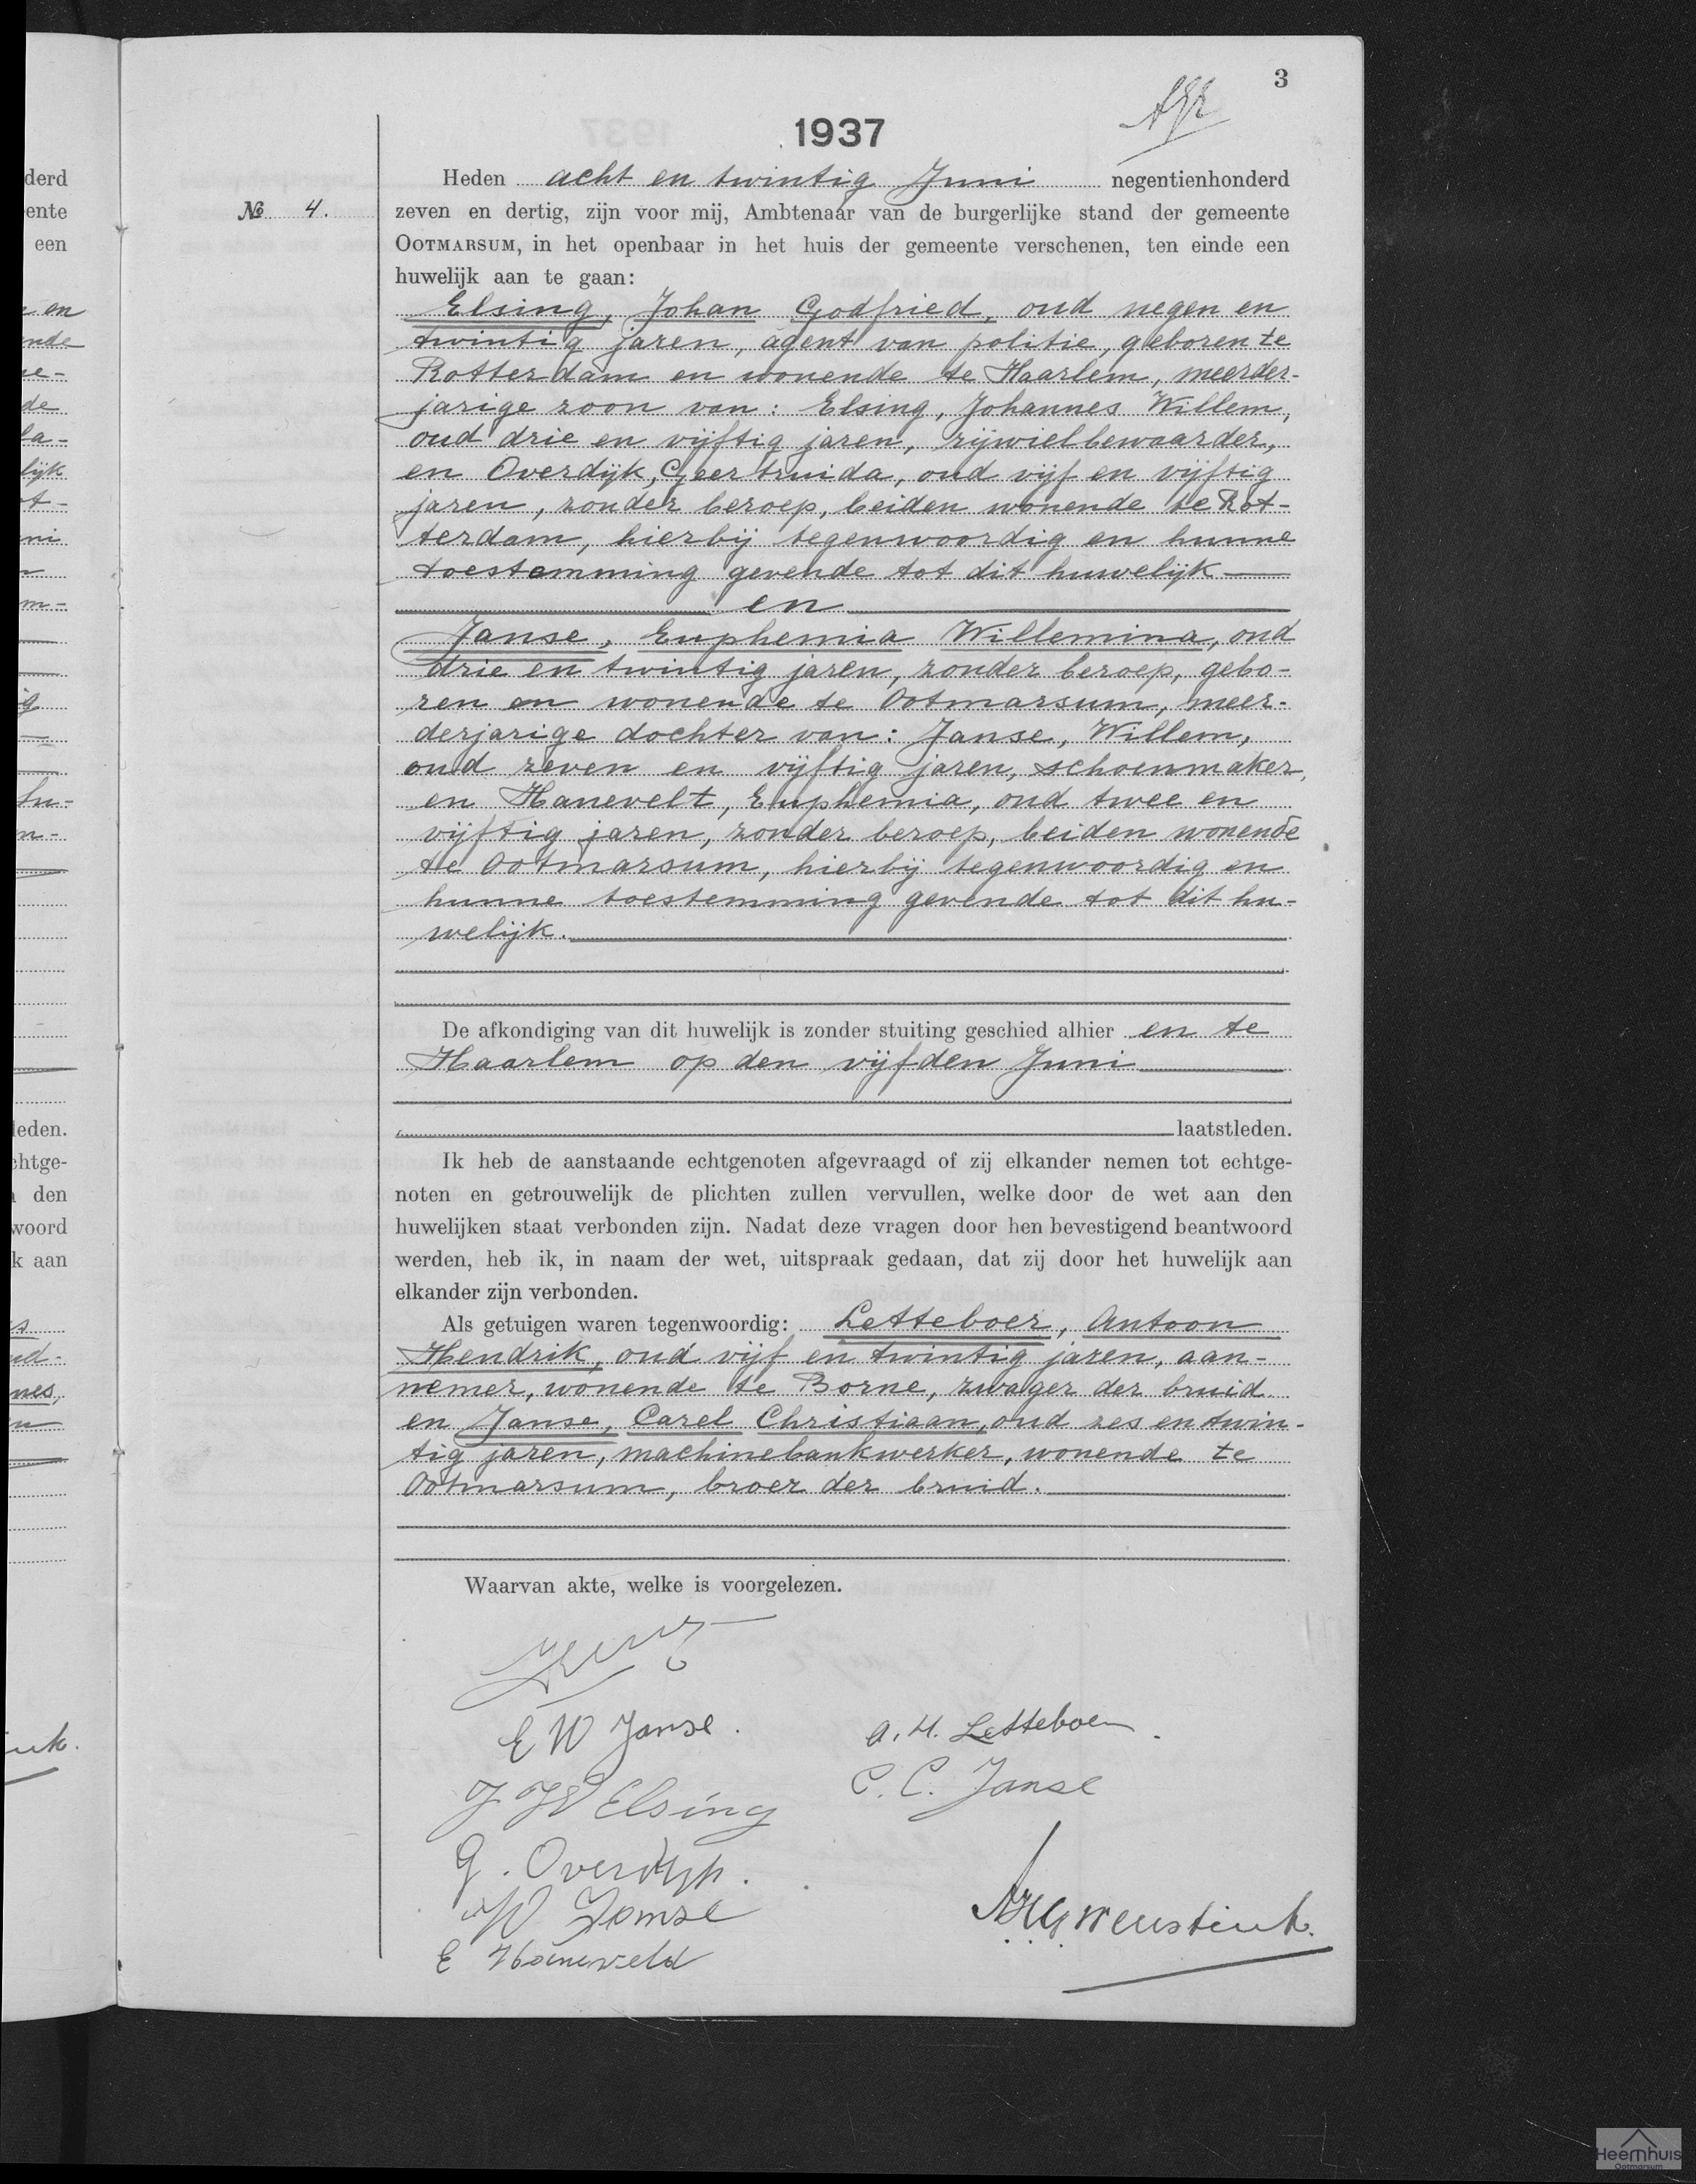 3
1937
Heden acht en twintig Juni negentienhonderd
№ 4.
zeven en dertig, zijn voor mij, Ambtenaar van de burgerlijke stand der gemeente
OOTMARSUM, in het openbaar in het huis der gemeente verschenen, ten einde een
huwelijk aan te gaan:
Elsing, Johan Godfried, oud negen en
twintig jaren, agent van politie, geboren te
Rotterdam en wonende te Haarlem, meerder-
jarige zoon van: Elsing, Johannes Willem,
oud drie en vijftig jaren, rijwielbewaarder,
en Overdijk, Geertruida, oud vijf en vijftig
jaren, zonder beroep, beiden wonende te Rot-
terdam, hierbij tegenwoordig en hunne
toestemming gevende tot dit huwelijk
en
Janse, Euphemia Willemina, oud
drie en twintig jaren, zonder beroep, gebo-
ren en wonende te Ootmarsum, meer-
derjarige dochter van: Janse, Willem,
oud zeven en vijftig jaren, schoenmaker,
en Hanevelt, Euphemia, oud twee en
vijftig jaren, zonder beroep, beiden wonende
te Ootmarsum, hierbij tegenwoordig en
hunne toestemming gevende tot dit hu-
welijk.
De afkondiging van dit huwelijk is zonder stuiting geschied alhier en te
Haarlem op den vijfden Juni
laatstleden.
Ik heb de aanstaande echtgenoten afgevraagd of zij elkander nemen tot echtge-
noten en getrouwelijk de plichten zullen vervullen, welke door de wet aan den
huwelijken staat verbonden zijn. Nadat deze vragen door hen bevestigend beantwoord
werden, heb ik, in naam der wet, uitspraak gedaan, dat zij door het huwelijk aan
elkander zijn verbonden.
Als getuigen waren tegenwoordig: Letteboer, Antoon
Hendrik, oud vijf en twintig jaren, aan-
nemer, wonende te Borne, zwager der bruid
en Janse, Carel Christiaan, oud zes en twin-
tig jaren, machinebankwerker, wonende te
Ootmarsum, broer der bruid.
Waarvan akte, welke is voorgelezen.
E W Janse.
A. H. Letteboer.
J W Elsing
C. C. Janse
G. Overdijk.
W Janse
E Haneveld
Heemhuis
Ootmarsum